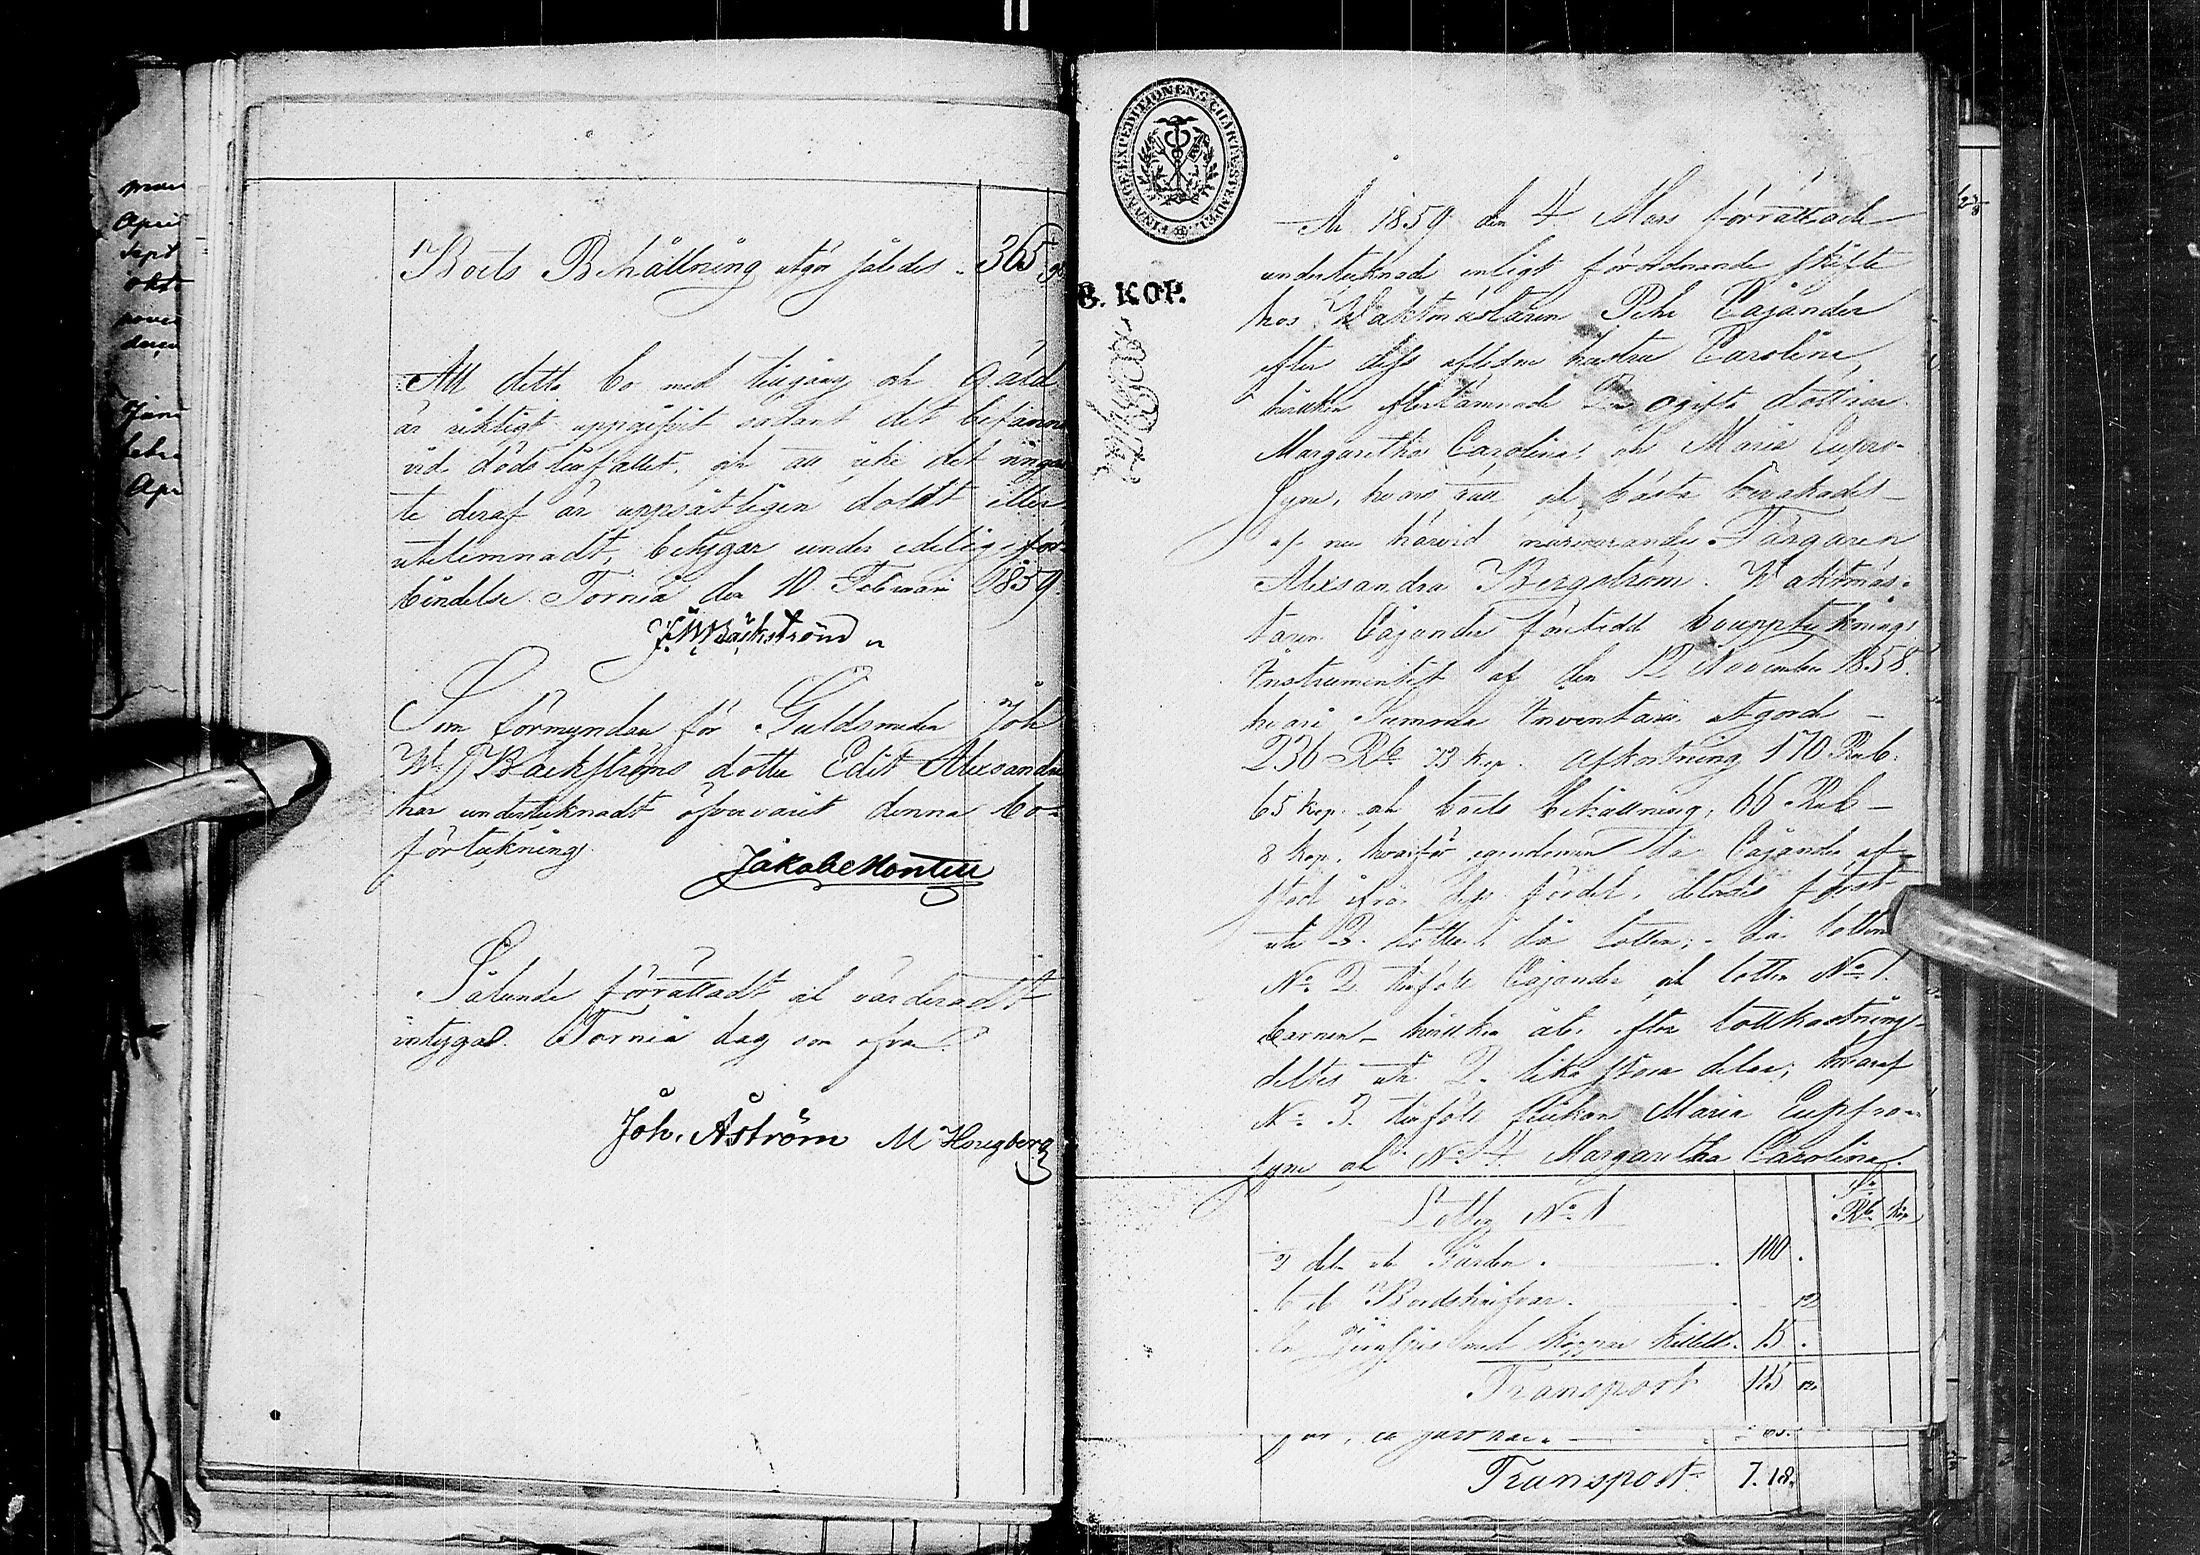 Boets Behållning utgör således. 365
Att detta bo med tillgång och Gäld
är riktigt uppgifvit sådant det befanns
vid dödstimfallet, och att icke det ringas
te deraf är uppsåtligen doldt eller
utelemnadt, betygar under edelig för-
bindelse. Torneå den 10 Februari 1859.
J. W. Bäckström
Som förmyndare för Guldsmeden Joh
W. Bäckströms dotter Edit Alexandra
har undertecknadt öfvervarit denna bo-
förteckning.
Jakob Montell
Sålunde förrättadt och värderadt
intygas. Torneå dag som ofvan.
Joh. Åström M Hougberg
FINANCE EXPEDITIONENS CHARTÆ STEMPEL
B. KOP.
År 1859 den 4 Mars förrättade
undertecknad enligt förordnande skifte
hos Waktmästaren Pehr Cajander
efter dess aflidne hustru Carolina
hvilken efterlämnade 2 ogifta döttrar
Margaretha Carolina och Maria Eupro-
syne, hvars rätt och bästa bevakades
af nu härvid närvarande Färgaren
Alexsandra Bergström. Waktmäs-
taren Cajander företedde bouppteknings
Instrumentet af den 12 November 1858.
hvari Summa Inventarium utgorde
236 Rb. 73 kop. afkortning 170 Rub.
65 kop. och boets behållning, 66 Rub
8 kop. hvarför egendomen då Cajander af-
stod ifrån dess fördel, delades först
uti 2. lotter då lotten
No 2 tillföll Cajander och lotten No 1.
barnen hvilka åter efter lottkastning
deltes uti 2. lika stora delar, hvaraf
No 3. tillföll flickan Maria Eupfro-
syne och No 4. Margaretha Carolina.
Lotten No 1 Rb. Kop
2 del uti Gården. 100.
6 st Bordsknifvar.
med koppar kittell. 15.
Transport 115
Transport 7.18.